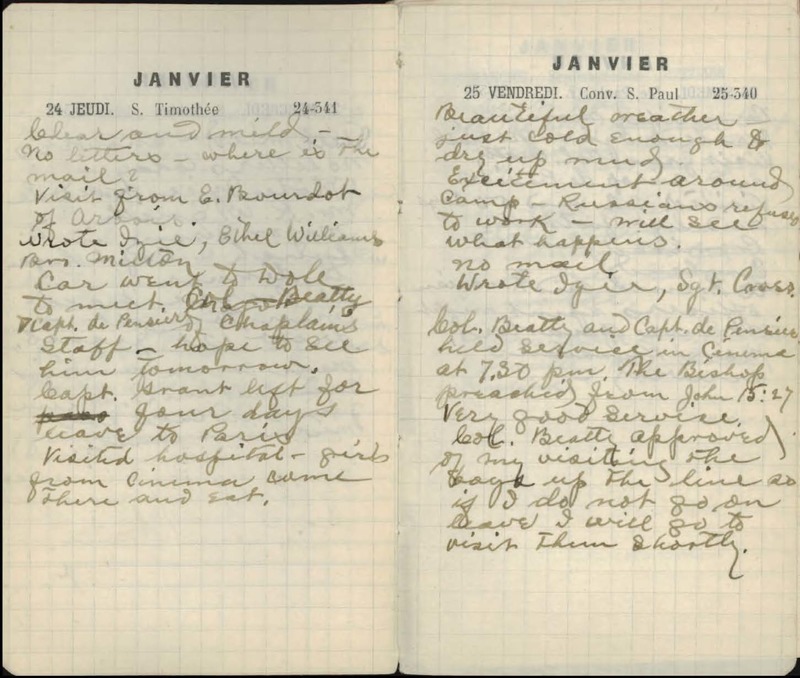 JANVIER
24 JEUDI. S. Timothée 24-341
Clear and mild -
No letters - where is the
mail?
Visit from E. Bourdot
of Arbois.
Wrote Izie, Ethel Williams
Milton
Car went to Dole
to meet Col. Beatty
& Capt. de Pensier of Chaplains
Staff - hope to see
him tomorrow.
Capt. Grant left for
four days
leave to Paris
Visited hospital - girls
from Cinema came
there and eat.
JANVIER
25 VENDREDI. Conv. S. Paul 25-340
Beautiful weather -
just cold enough to
dry up mud.
Excitement around
camp - Russians refuse
to work - will see
what happens.
No mail
Wrote Izie, Sgt.
Col. Beatty and Capt. de Pensier
held service in Cinema
at 7.30 pm. The Bishop
preached from John 15:27
Very good service.
Col. Beatty approved
of my visiting the
boys up the line so
if I do not go on
leave I will go to
visit them shortly.